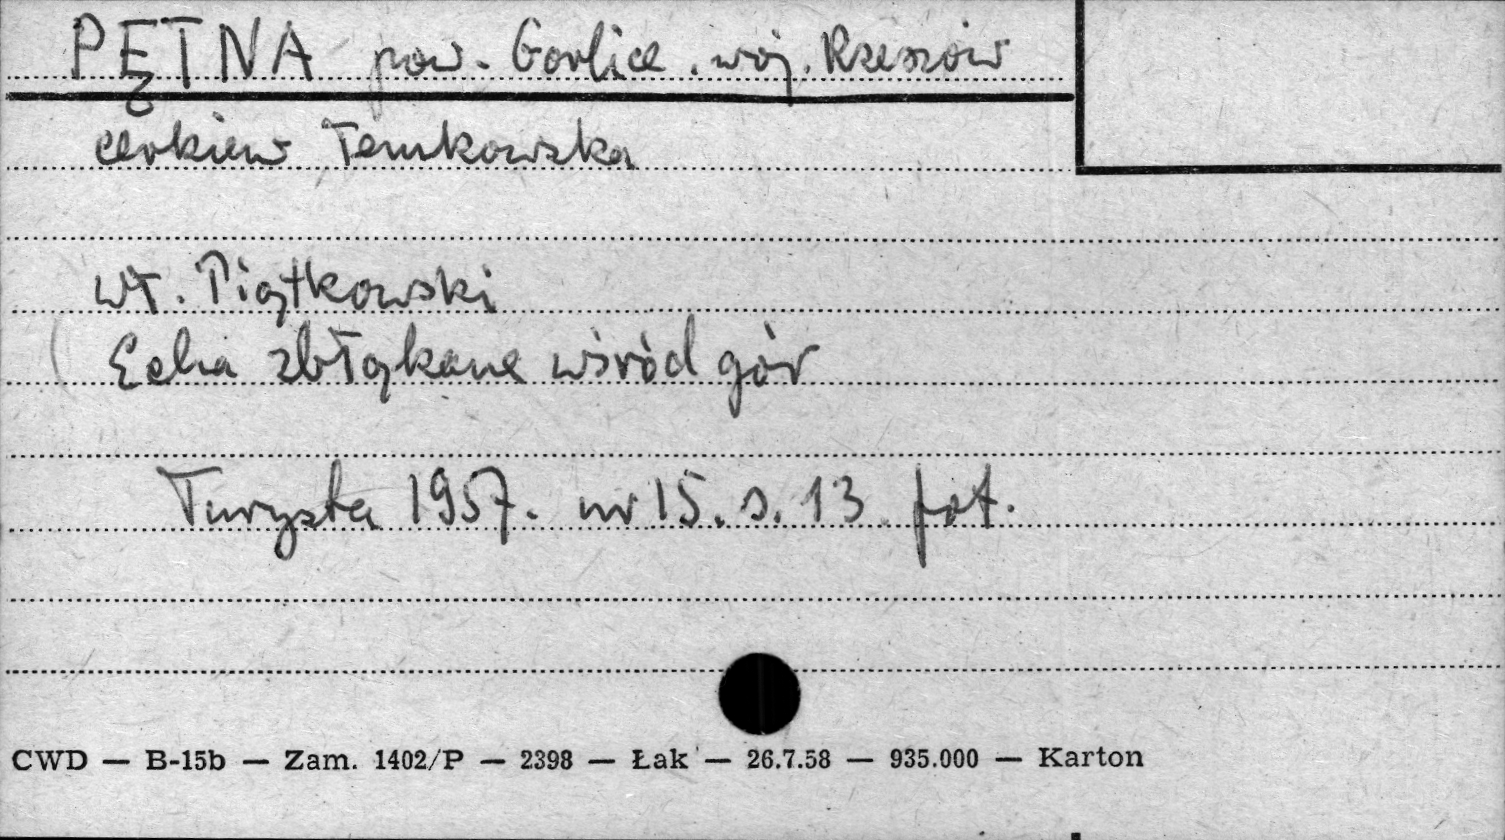 PĘTNA pow. Gorlice. woj. Rzeszów
cerkiew łemkowska
Wł. Piątkowski
Echa zbłąkane wśród gór
Turysta 1957. nr 15. s. 13 fot.
CWD — B-15b — Zam. 1402/P — 2398 — Łak — 26.7.58 — 935.000 — Karton